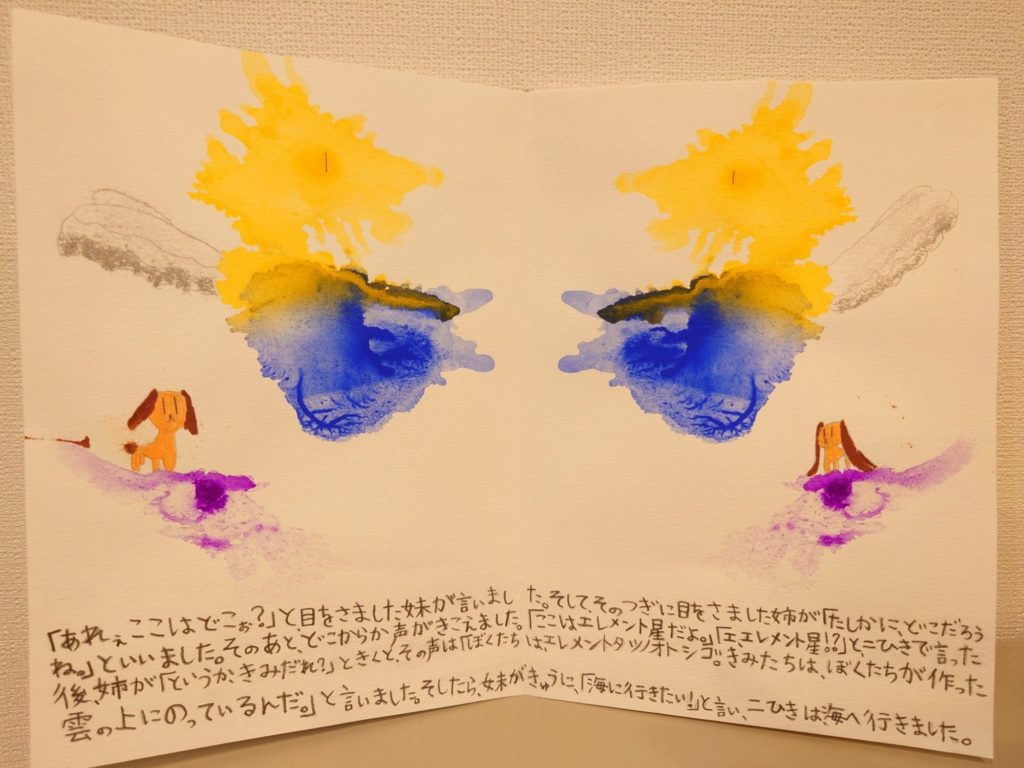 「あれぇここはどこぉ?」と目をさました妹が言いました。そして、そのつぎに目をさました姉が「たしかに、どこだろう
ね。」といいました。そのあと、どこからか声がきこえました。「ここはエレメント星だよ。」「エ、エレメント星!?」と、二ひきで言った
後、姉が「というか、きみだれ?」ときくと、その声は「ぼくたちは、エレメントタツノオトシゴ。きみたちは、ぼくたちが作った
雲の上にのっているんだ。」と言いました。そしたら、妹がきゅうに、「海に行きたい!」と言い、二ひきは海へ行きました。